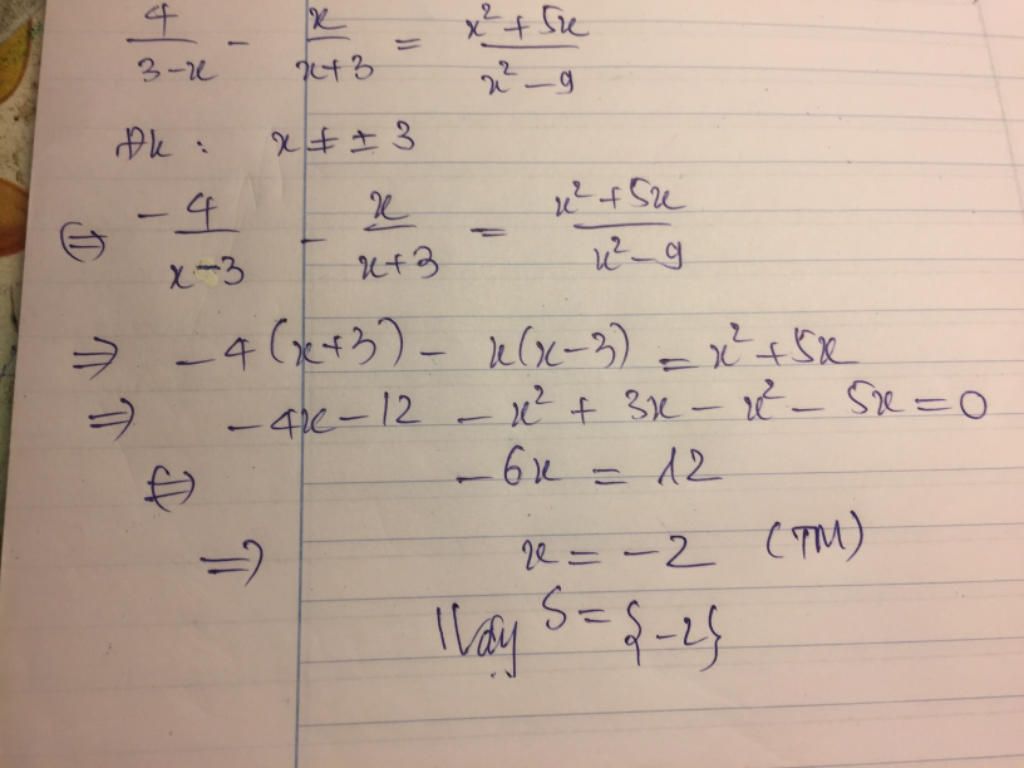 4/(3-x) - x/(x+3) = (x² + 5x)/(x² - 9)
Đk : x ≠ ± 3
⇔ -4/(x-3) - x/(x+3) = (x² + 5x)/(x² - 9)
⇒ -4(x+3) - x(x-3) = x² + 5x
⇒ -4x - 12 - x² + 3x - x² - 5x = 0
⇔ -6x = 12
⇒ x = -2 (TM)
Vậy S = {-2}